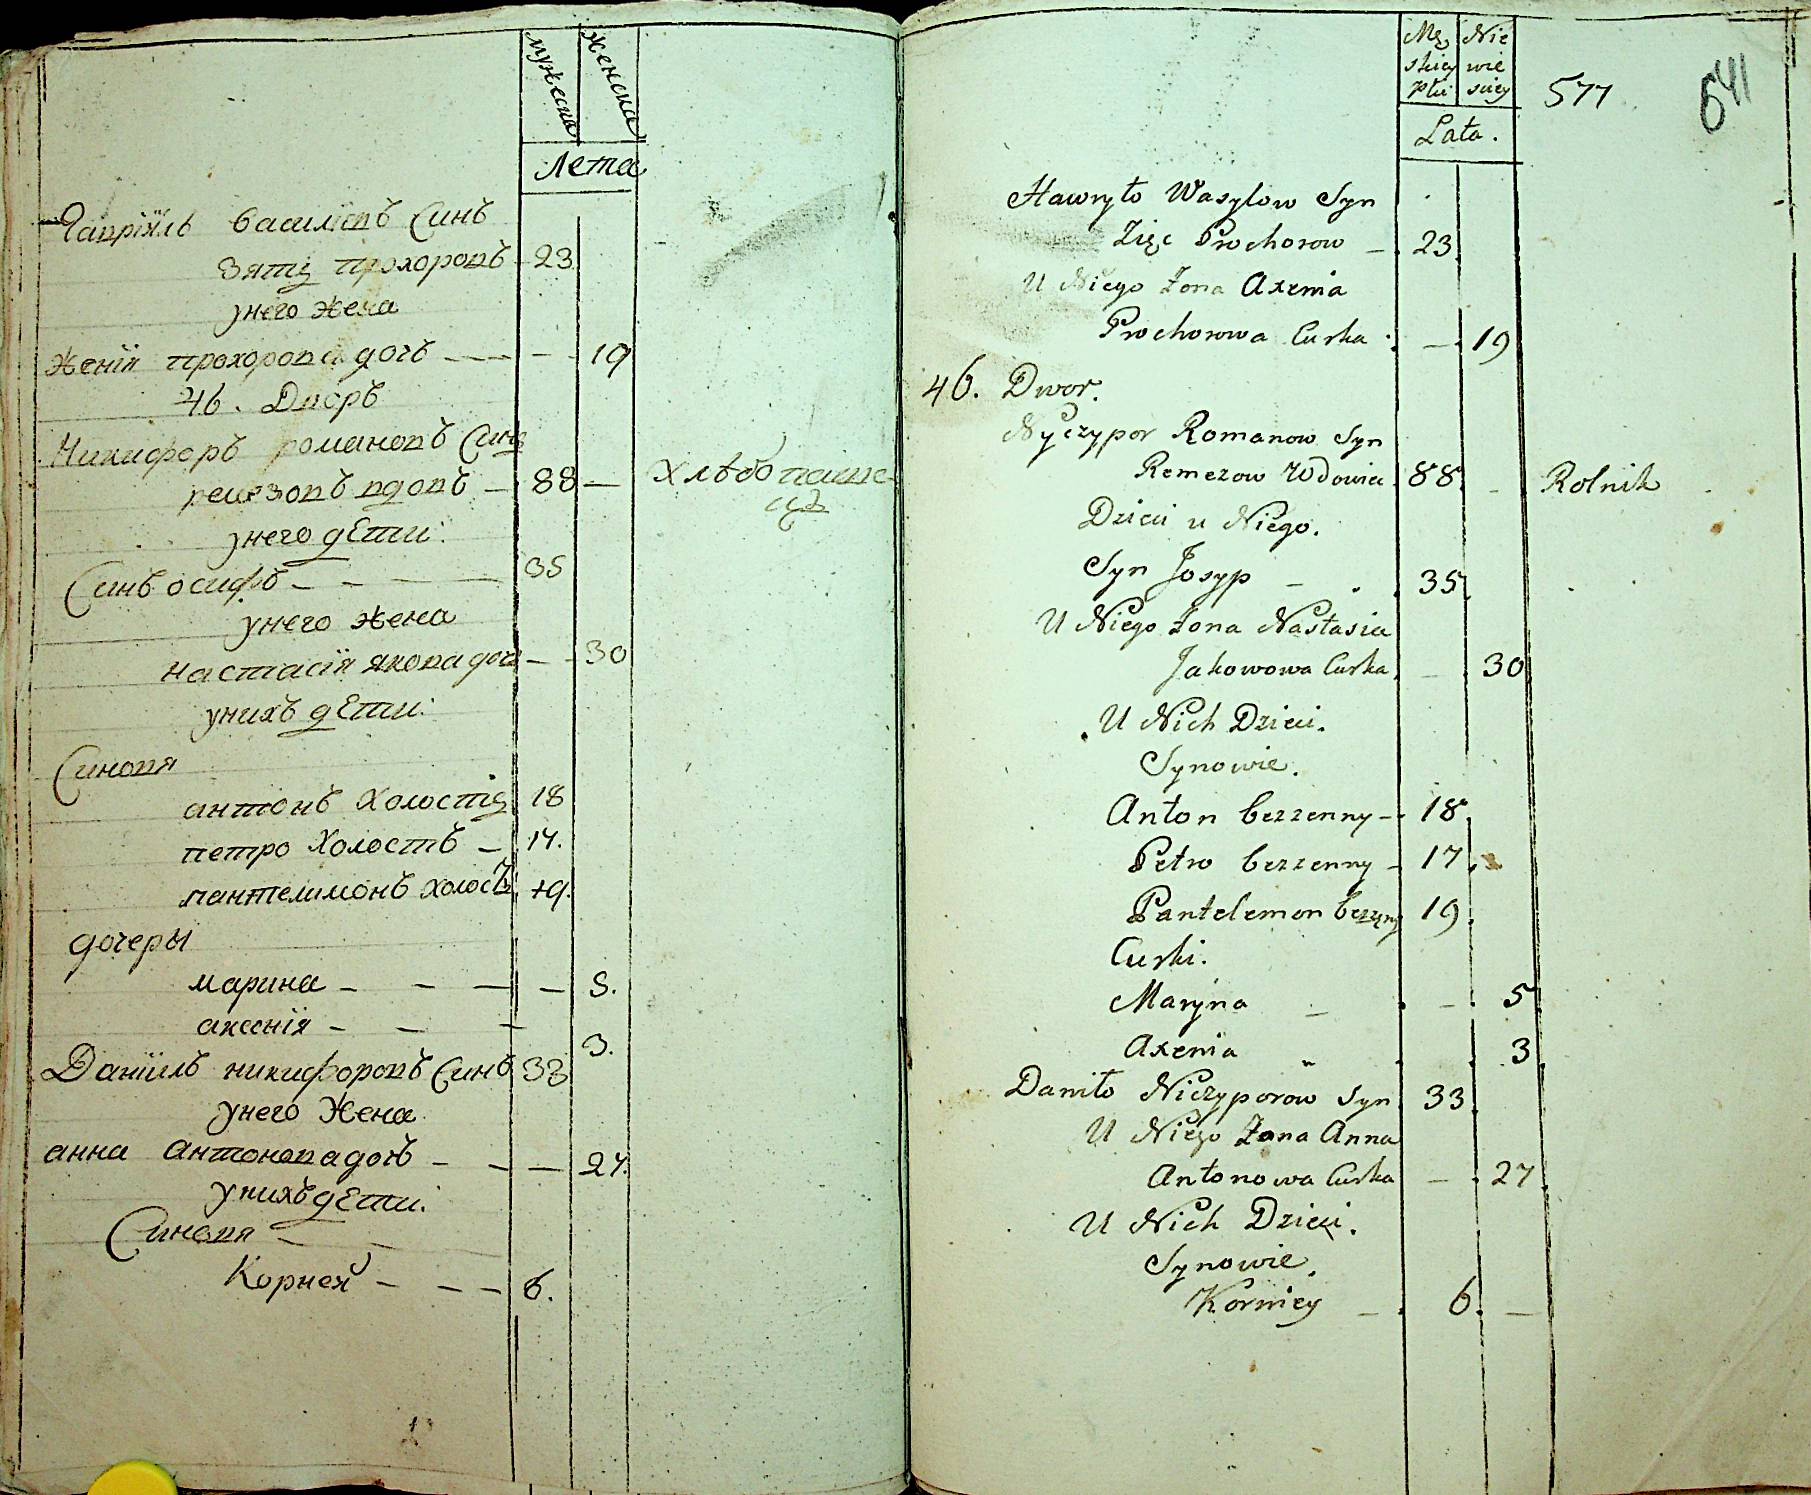 мужеска
женска
Лета
Гавріилъ василіевъ Синъ
зять прохоровъ - 23
унего жена
ксенія прохорова дочъ - - - 19
46. Дворъ
Никифоръ романовъ Синъ
ремезовъ вдовъ - 88 - хлѣбопаше-
цъ
унего дети:
Синъ осифъ - - - 35
унего жена
настасія якова дочъ - - 30
унихъ дети:
Синовя
антонъ холостъ 18
петро холостъ - 17.
пантелимонъ холостъ 19.
дочеры
марина - - - - 5.
аксенія - - - 3.
Даніилъ никифоровъ Синъ 33
унего жена
анна антонова дочъ - - - 27.
унихъ дети:
Синовя -
Корней - - - 6.
Mę
skiey
płci
Nie
wie
sciey
577
541
Lata.
Hawryło Wasylow Syn
Zięc Prochorow - 23.
U Niego Zona Axenia
Prochorowa Curka . - 19
46. Dwor.
Nyczypor Romanow Syn
Remezow Wdowiec 88. - Rolnik
Dzieci u Niego.
Syn Josyp - . 35.
U Niego Zona Nastasia
Jakowowa Curka. - 30
U Nich Dzieci.
Synowie.
Anton bezzenny - 18.
Petro bezzenny - 17.
Pantelemon bezzenny 19.
Curki.
Maryna - . - . 5
Axenia 3.
Daniło Niczyporow Syn 33.
U Niego Zona Anna
Antonowa Curka - . 27.
U Nich Dzieci.
Synowie.
Korniey - . 6. -